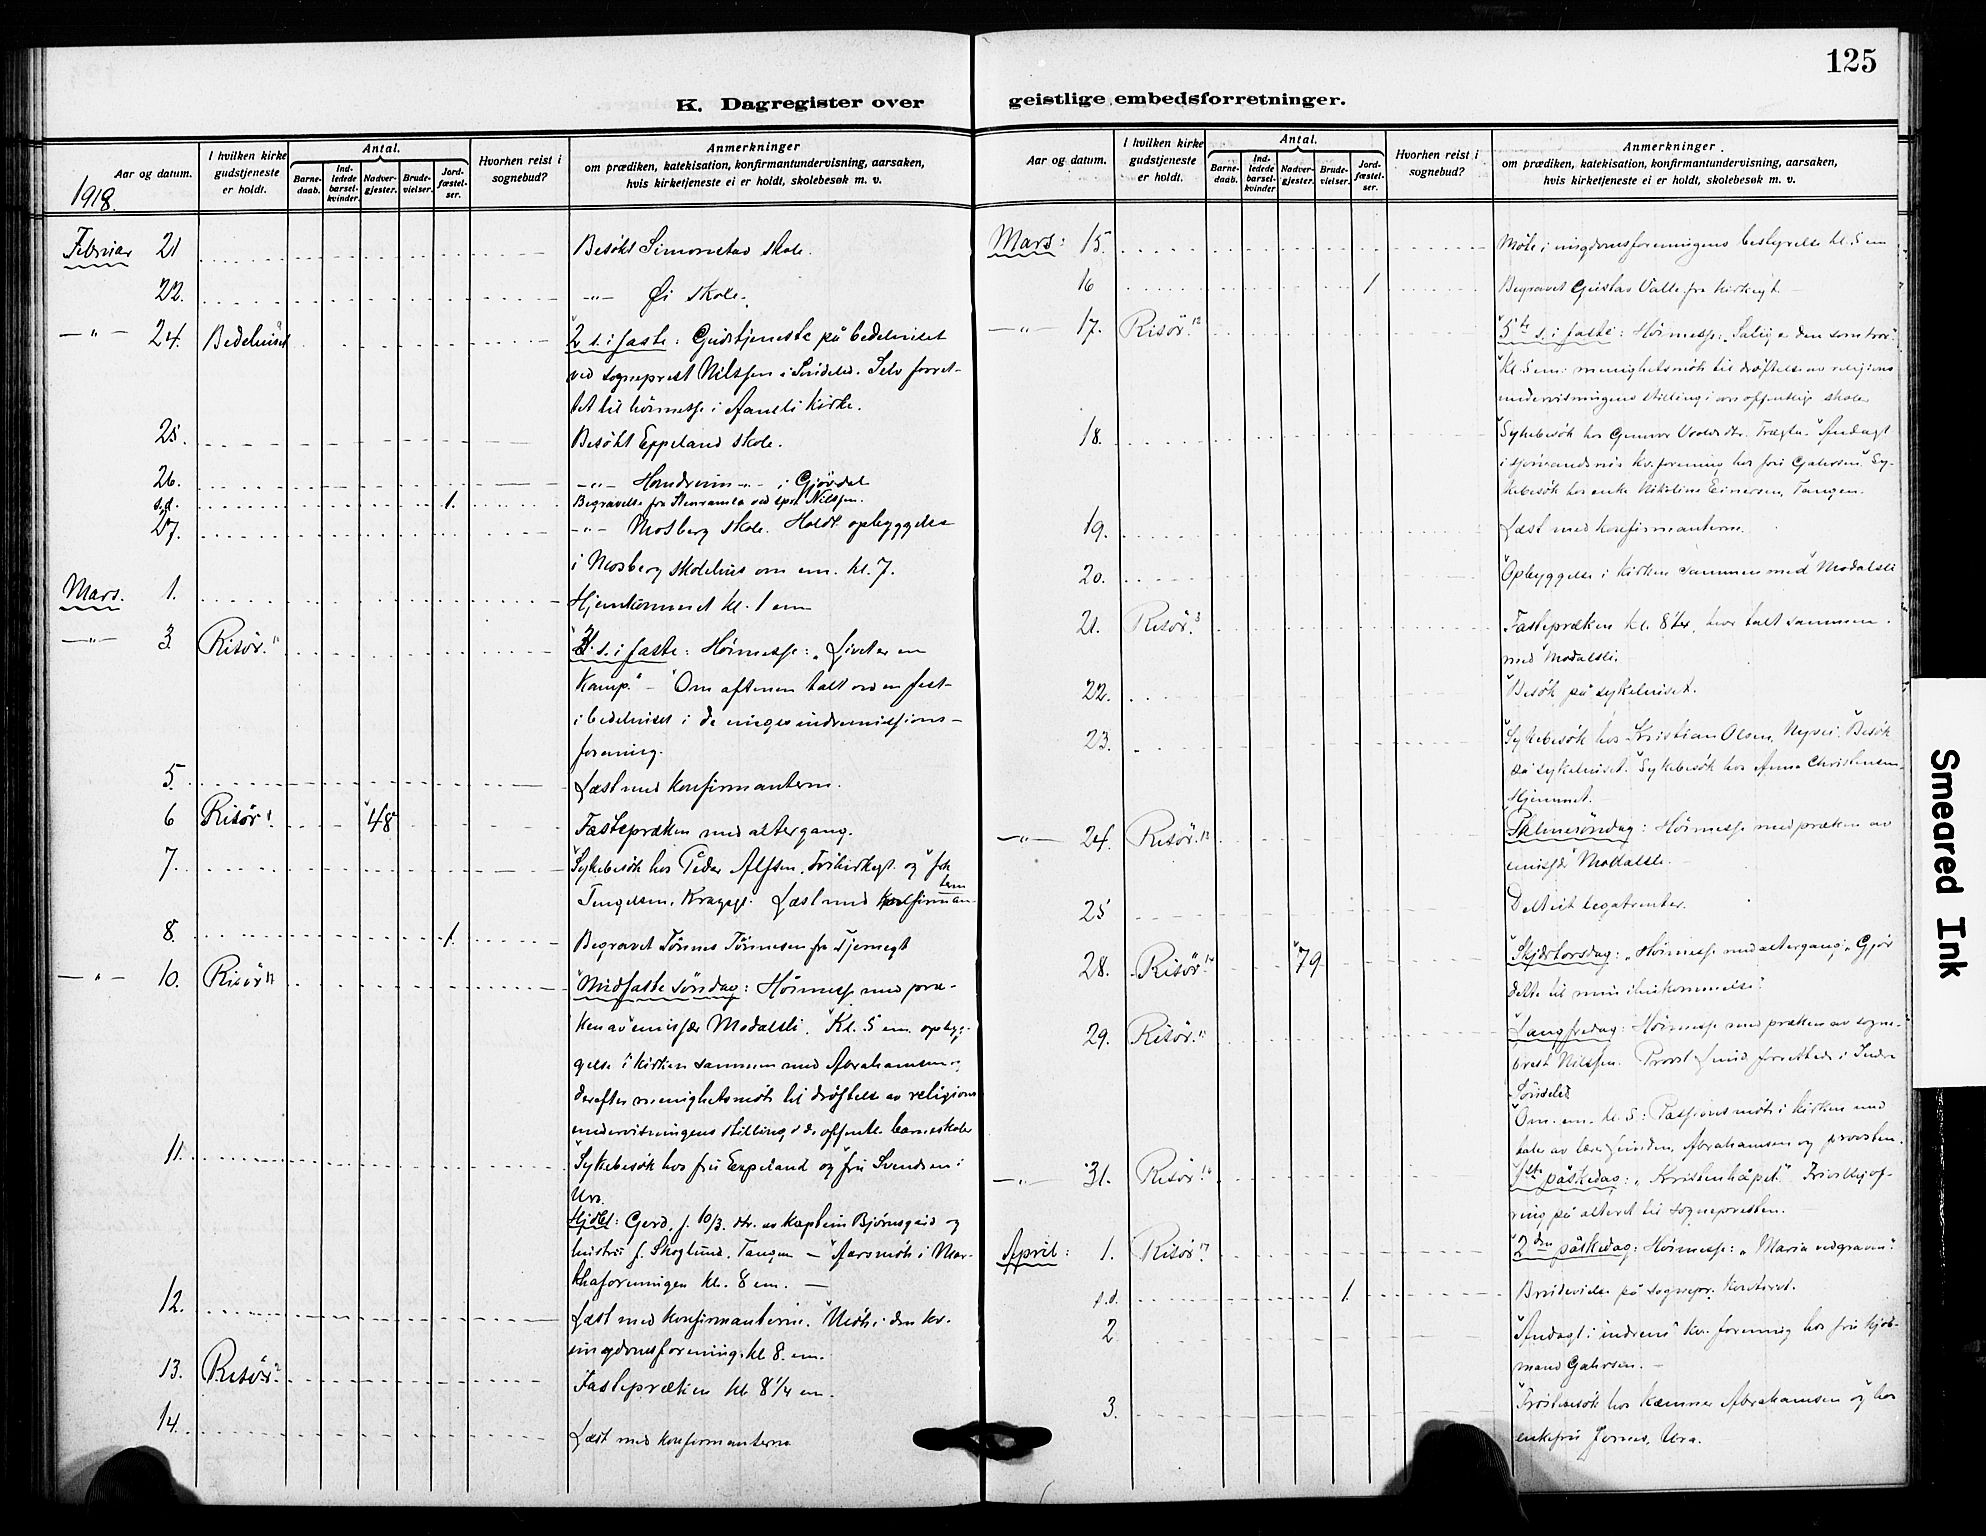 125
K. Dagregister over
geistlige embedsforretninger.
Aar og datum.
I hvilken kirke gudstjeneste er holdt.
Antal.
Barne-daab.
Ind-ledede barsel-kvinder.
Nadver-gjester.
Brude-vielser.
Jord-fæstel-ser.
Hvorhen reist i sognebud?
Anmerkninger
om prædiken, katekisation, konfirmantundervisning, aarsaken,
hvis kirketjeneste ei er holdt, skolebesøk m. v.
1918.
Februar 21 Besøkt Simonstad skole.
22. -"- Øi skole.
-"- 24. Bedehuset 2 s. i faste: Gudstjeneste på bedehuset
ved sogneprest Nilssen i Søndeled. Selv forret-
tet til höimesse i Aamli kirke.
25. Besökt Eppeland skole.
26. -"- Homdrum -"- i Gjövdal
s.d. 1. Begravelse fra ved spr. Nilssen.
27. -"- Mosberg skole. Holdt opbyggelse
i Mosberg skolehus om em. kl. 7.
Mars. 1. Hjemkommet kl. 1 em
-"- 3. Risør. 3. s. i faste: Høimesse: "Livet er en
Kamp." - Om aftenen talt ved en fest
i bedehuset i de unges indremissions-
forening.
5. Læst med konfirmanterne.
6 Risør 48 Fastepræken med altergang.
7. Sykebesök hos Peder Alfsen, og
Læst med konfirman-
terne
8. 1. Begravet Tönnes Tönnesen fra Tjernegt
-"- 10. Risør Midfastesöndag: Höimesse med præ-
ken av emissær Modalsli. Kl. 5 em. opbyg-
gelse i kirken sammen med Abrahamsen og
derefter menighetsmöte til dröftelse av religions
undervisningens stilling i de offentl. barneskoler
11. Sykebesök hos fru Eppeland og fru Svendsen i
Ura.
Hjdbt: Gerd, f. 10/3. dtr. av Kaptein Bjørnsgård og
hustru f. Skoglund, Tangen - Aarsmöte i Mar-
thaforeningen kl. 8 em.
12. Læst med konfirmanterne. Möte i den kr.
ungdomsforening kl 8. em.
13. Risør Fastepræken kl 8 1/4 em.
14. Læst med konfirmanterne
Aar og datum.
I hvilken kirke gudstjeneste er holdt.
Antal.
Barne-daab.
Ind-ledede barsel-kvinder
Nadver-gjester.
Brude-vielser.
Jord-fæstel-ser.
Hvorhen reist i sognebud?
Anmerkninger.
om prædiken, katekisation, konfirmantundervisning, aarsaken,
hvis kirketjeneste ei er holdt, skolebesøk m. v.
Mars: 15. Möte i ungdomsforeningens bestyrelse kl. 5 em
16 1 Begravet Gustav Valle fra Kirkegt.
-"- 17. Risør. 12 5te s. i faste: Höimesse: "Salig er den som tror."
Kl. 5 em: menighetsmöte til dröftelse av religions
undervisningens stilling i den offentlige skole
18. Sykebesök hos Gunvor Andagt
kv. forening hos fru Sy-
kebesök hos enke Nikoline Einersen, Tangen.
19. Læst med konfirmanterne.
20. Opbyggelse i kirken sammen med Modalsli
21. Risör. Fastepræken kl. 8 1/4, hvor talt sammen
med Modalsli.
22. Besök på sykehuset.
23. Sykebesök hos Kristian Olsen, Nyvei. Besök
på sykehuset. Sykebesök hos Anna Christensen,
Hjemmet.
-"- 24. Risør. Palmesöndag: Höimesse med præken av
emissær Modalsli.
25 Delt ut legatrenter.
28. Risør. 79 Skjærtorsdag: Höimesse med altergang: "Gjør
dette til min ihukommelse".
29. Risör. Langfredag: Höimesse med præken av sogne-
prest Nilssen. Provst forrettede i Indre
Söndeled
Om em. kl. 5: Passionsmöte i kirken med
tale av Abrahamsen og provsten.
-"- 31. Risør. 1ste påskedag: "Kristenhåpet." Frivillig of-
ring på alteret til sognepresten.
April: 1. Risör 2den påskedag: Höimesse: "Maria ved graven."
s.d. 1. Brudevielse på sognepr. kontoret.
2. Andagt i indrem. kv. forening hos fru kjöb-
mand
3. hos kæmner Abrahamsen og hos
enkefru Ura.
Smeared Ink